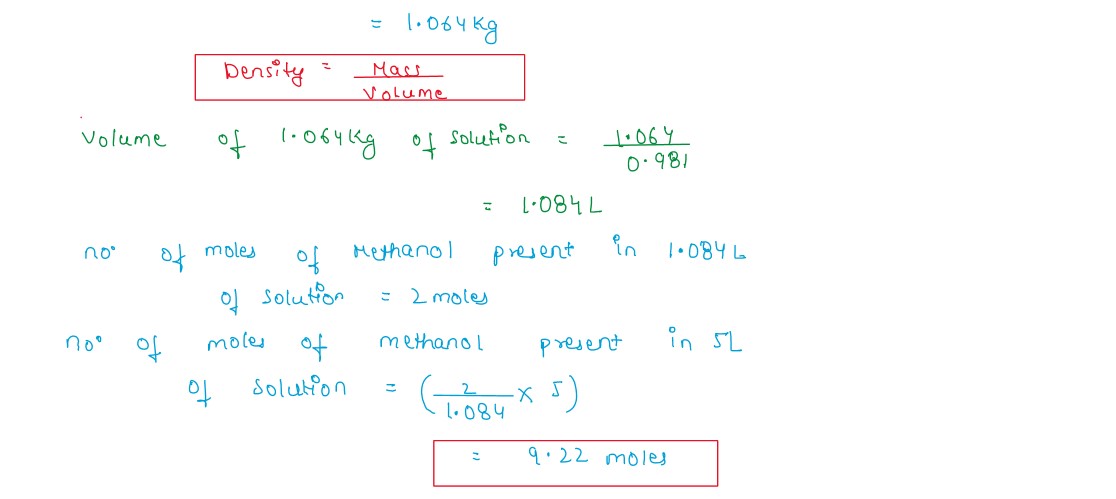 = 1.064 Kg
Density = Mass / Volume
Volume of 1.064 Kg of solution = 1.064 / 0.981
= 1.084 L
no. of moles of Methanol present in 1.084 L
of solution = 2 moles
no. of moles of methanol present in 5L
of solution = (2 / 1.084 × 5)
= 9.22 moles